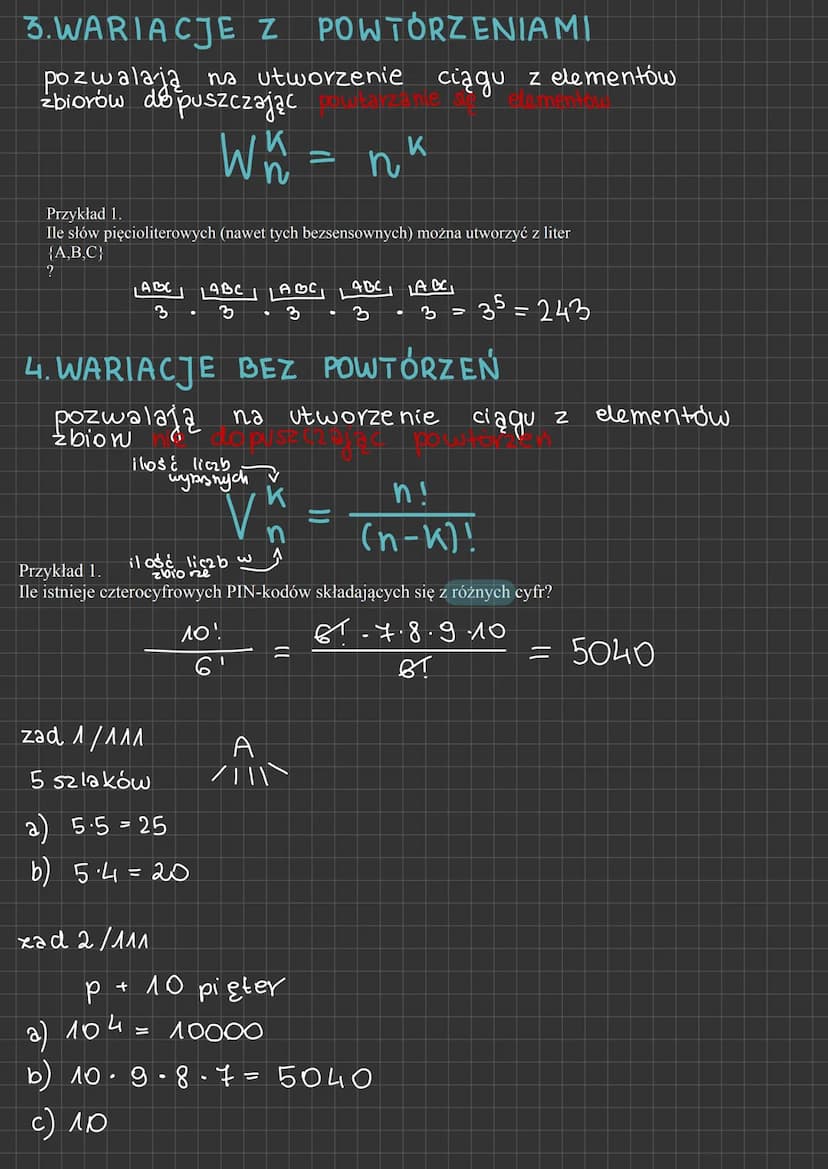 3. WARIACJE Z POWTÓRZENIAMI
pozwalają na utworzenie ciągu z elementów
zbiorów dopuszczając powtarzanie się elementów
W_n^k = n^k
Przykład 1.
Ile słów pięcioliterowych (nawet tych bezsensownych) można utworzyć z liter
{A,B,C}
?
ABC ABC ABC ABC ABC
3 · 3 · 3 · 3 · 3 = 3^5 = 243
4. WARIACJE BEZ POWTÓRZEŃ
pozwalają na utworzenie ciągu z elementów
zbioru nie dopuszczając powtórzeń
ilość liczb
wybranych
V_n^k = n! / (n-k)!
ilość liczb w
zbiorze
Przykład 1.
Ile istnieje czterocyfrowych PIN-kodów składających się z różnych cyfr?
10! / 6! = 6! · 7 · 8 · 9 · 10 / 6! = 5040
zad 1/111
A
5 szlaków
a) 5·5 = 25
b) 5·4 = 20
zad 2/111
p + 10 pięter
a) 10^4 = 10000
b) 10 · 9 · 8 · 7 = 5040
c) 10